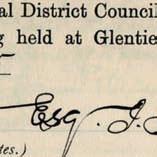 al District Council
g held at Glentie
Esq. J.
tes.)